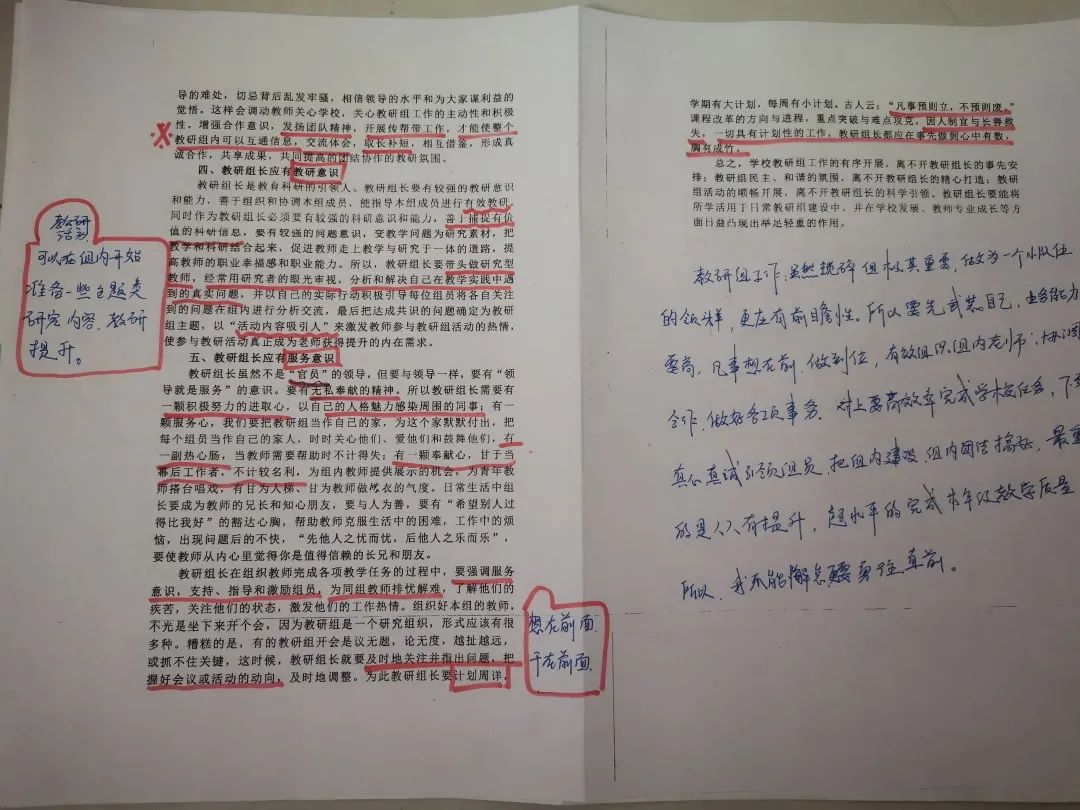 导的难处，切忌背后乱发牢骚，相信领导的水平和为大家谋利益的
觉悟。这样会调动教师关心学校、关心教研组工作的主动性和积极
性。增强合作意识，发扬团队精神，开展传帮带工作，才能使整个
教研组内可以互通信息，交流体会，取长补短，相互借鉴，形成真
诚合作，共享成果，共同提高的团结协作的教研氛围。
四、教研组长应有教研意识
教研组长是教育科研的引领人。教研组长要有较强的教研意识
和能力，善于组织和协调本组成员，能指导本组成员进行有效教研，
同时作为教研组长必须要有较强的科研意识和能力，善于捕捉有价
值的科研信息，要有较强的问题意识，变教学问题为研究素材，把
教学和科研结合起来，促进教师走上教学与研究于一体的道路，提
高教师的职业幸福感和职业能力。所以，教研组长要带头做研究型
教师，经常用研究者的眼光审视，分析和解决自己在教学实践中遇
到的真实问题，并以自己的实际行动积极引导每位组员将各自关注
到的问题在组内进行分析交流，最后把达成共识的问题确定为教研
组主题，以“活动内容吸引人”来激发教师参与教研组活动的热情，
使参与教研活动真正成为老师获得提升的内在需求。
五、教研组长应有服务意识
教研组长虽然不是“官员”的领导，但要与领导一样，要有“领
导就是服务”的意识。要有无私奉献的精神。所以教研组长需要有
一颗积极努力的进取心，以自己的人格魅力感染周围的同事；有一
颗服务心，我们要把教研组当作自己的家，为这个家默默付出，把
每个组员当作自己的家人，时时关心他们、爱他们和鼓舞他们，有
一副热心肠，当教师需要帮助时不计得失；有一颗奉献心，甘于当
幕后工作者，不计较名利，为组内教师提供展示的机会，为青年教
师搭台唱戏，有甘为人梯、甘为教师做嫁衣的气度。日常生活中组
长要成为教师的兄长和知心朋友，要与人为善，要有“希望别人过
得比我好”的豁达心胸，帮助教师克服生活中的困难，工作中的烦
恼，出现问题后的不快，“先他人之忧而忧，后他人之乐而乐”，
要使教师从内心里觉得你是值得信赖的长兄和朋友。
教研组长在组织教师完成各项教学任务的过程中，要强调服务
意识，支持、指导和激励组员，为同组教师排忧解难，了解他们的
疾苦，关注他们的状态，激发他们的工作热情。组织好本组的教师，
不光是坐下来开个会，因为教研组是一个研究组织，形式应该有很
多种。糟糕的是，有的教研组开会是议无题，论无度，越扯越远，
或抓不住关键，这时候，教研组长就要及时地关注并指出问题，把
握好会议或活动的动向，及时地调整。为此教研组长要计划周详，
教研
活动
可以在组内开始
准备一些主题类
研究内容，教研
提升。
想在前面
干在前面
学期有大计划，每周有小计划。古人云：“凡事预则立，不预则废。”
课程改革的方向与进程，重点突破与难点攻克，因人制宜与长善救
失，一切具有计划性的工作，教研组长都应在事先做到心中有数，
胸有成竹。
总之，学校教研组工作的有序开展，离不开教研组长的事先安
排；教研组民主、和谐的氛围，离不开教研组长的精心打造；教研
组活动的顺畅开展，离不开教研组长的科学引领。教研组长要能将
所学活用于日常教研组建设中，并在学校发展、教师专业成长等方
面日益凸现出举足轻重的作用。
教研组工作虽然琐碎但极其重要，做为一个小队伍
的领头羊，更应有前瞻性。所以要先武装自己，业务能力
要高，凡事想在前，做到位，有效组织组内老师，协调
合作，做好各项事务。对上要高效率完成学校任务，下要
真心真诚引领组员，把组内建设，组内团结搞好，最重
的是人人有提升，超水平的完成本年级教学质量
所以，我不能懈怠要勇往直前。